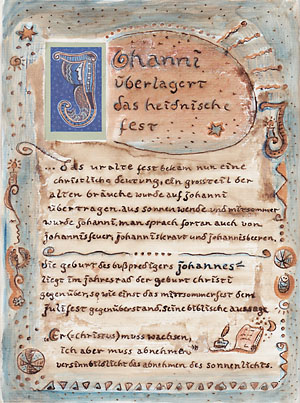 Johanni
überlagert
das heidnische
fest
... das uralte fest bekam nur eine
christliche deutung, ein grossteil der
alten bräuche wurde auf johanni
übertragen. aus sonnenwende und mittsommer
wurde johanni, man sprach fortan auch von
johannisfeuer, johanniskraut und johannisbeeren.
die geburt des bußpredigers johannes
liegt im jahresrad der geburt christi
gegenüber, so wie einst das mittsommerfest dem
julfest gegenüberstand, seine biblische aussage
„Er (christus) muss wachsen,
ich aber muss abnehmen"
versinnbildlicht das abnehmen des sonnenlichts.